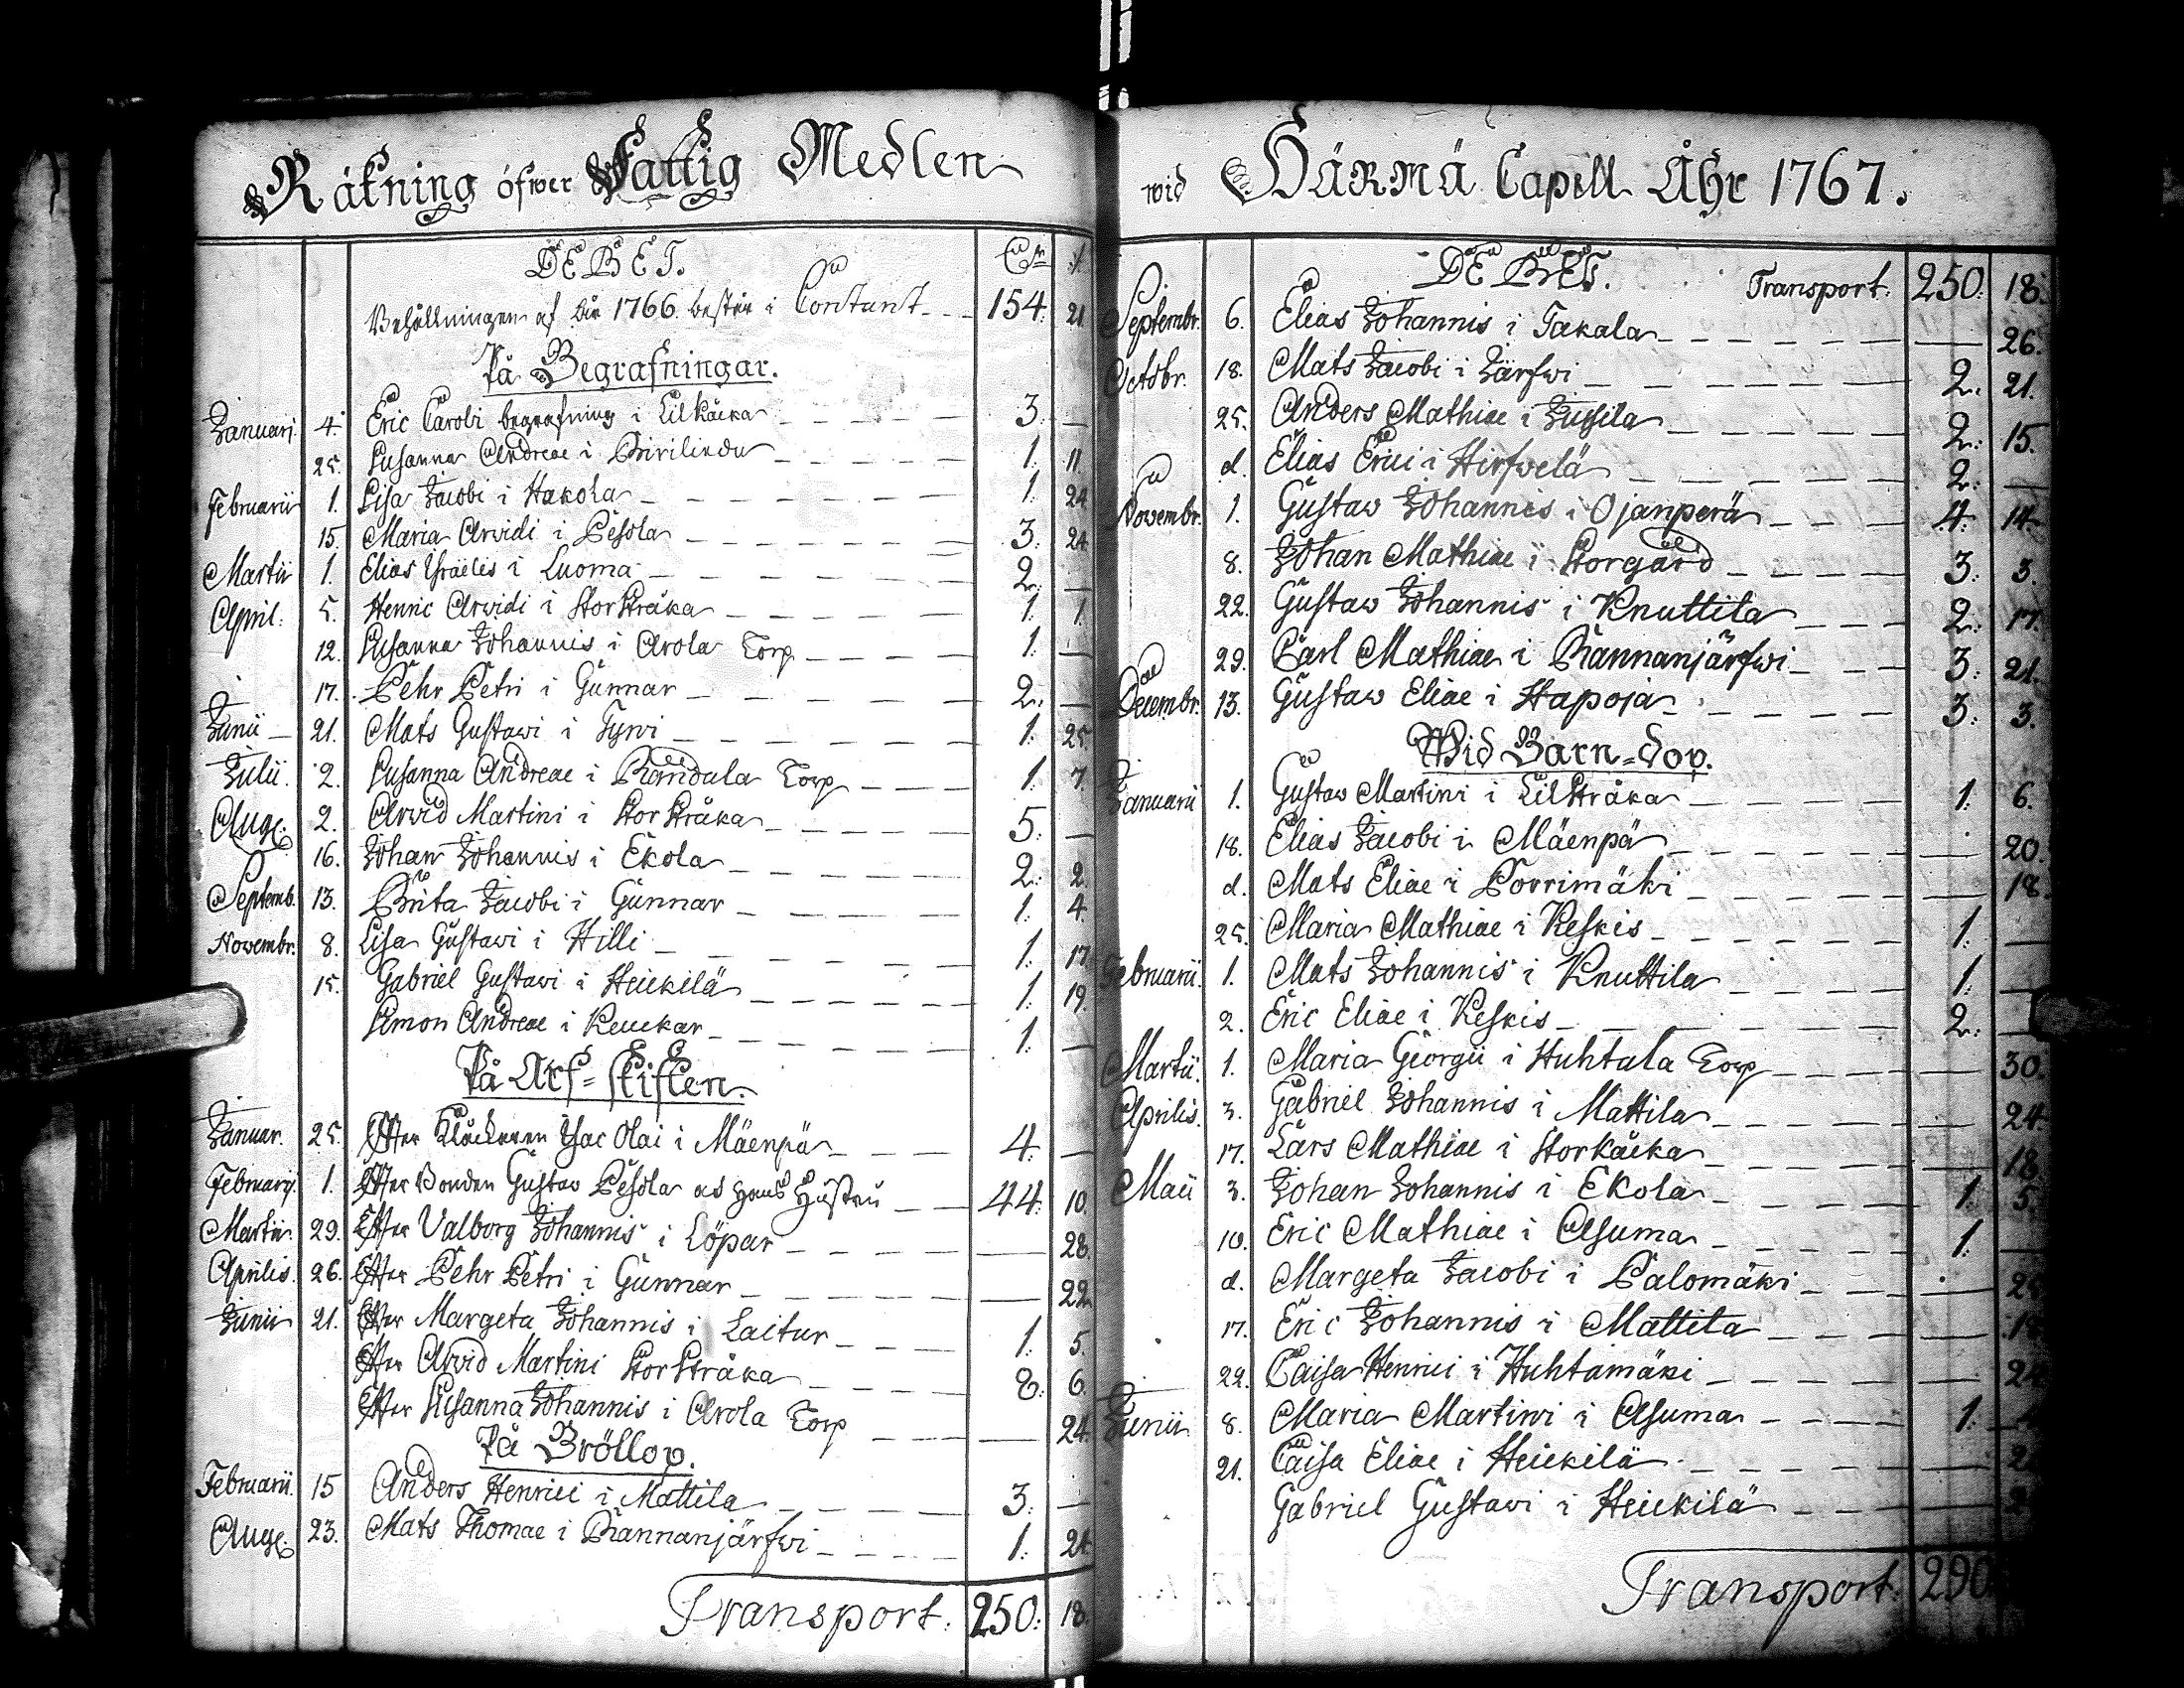 Räkning öfwer Fattig Medlen
DEBET.
Behållningen af år 1766. består i Contant 154: 21
På Begrafningar.
Januarj. 4. Eric Caroli begrafning i Lilkåcka 3: —
25. Susanna Andreae i 1: 11.
Februarii 1. Lisa Jacobi i Hakola 1: 24
15. Maria Arvidi i Pesola 3: 24
Martii 1. Elias Israelis i Luoma 2: —
April: 5. Henric Arvidi i Storstråka 1: 1.
12. Susanna Johannis i Arola Torp 1: —
17. Pehr Petri i Gunnar 2: —
Junii 21. Mats Gustavi i Tyni 1: 25.
Julii. 2. Susanna Andreae i Randala Torp 1: 7.
Aug: 2. Arvid Martini i Storstråka 5: —
16. Johan Johannis i Ekola 2: 2.
Septemb. 13. Brita Jacobi i Gunnar 1: 4.
Novembr. 8. Lisa Gustavi i Hilli 1: 17
15. Gabriel Gustavi i Heickilä 1: 19.
Simon Andreae i Keuckar 1: —
På Arf-skiften.
Januar. 25. Efter Klåckaren Isac Olai i Mäenpä 4. —
Februarij. 1. Efter Bonden Gustav Pesola och hans Hustru 44: 10.
Martii. 29. Efter Valborg Johannis i Löpar — 28.
Aprilis. 26. Efter Pehr Petri i Gunnar — 22
Junii 21. Efter Margeta Johannis i Laitur 1: 5.
Efter Arvid Martini Storstråka 8: 6.
Efter Susanna Johannis i Arola Torp — 24.
På Bröllop.
Februarii. 15 Anders Henrici i Mattila 3: —
Aug: 23. Mats Thomae i Rannanjärfwi 1: 21
Transport: 250: 18.
wid Härmä Capell Åhr 1767.
DEBET. Transport: 250: 18.
Septembr. 6. Elias Johannis i Takala — 26.
Octobr. 18. Mats Jacobi i Järfwi 2: 21.
25. Anders Mathiae i Jussila 2: 15.
d. Elias Erici i Hirfwelä 2: —
Novembr. 1. Gustav Johannis i Ojanperä 4: 14
8. Johan Mathiae i Storgård 3: 3.
22. Gustav Johannis i Knuttila 2: 17.
29. Carl Mathiae i Rannanjärfwi 3: 21.
Decembr. 13. Gustav Eliae i Hapoja 3: 3.
Wid Barn-dop.
Januarii 1. Gustav Martini i Lilstråka 1: 6.
18. Elias Jacobi i Mäenpä — 20.
d. Mats Eliae i Porrimäki — 18.
25. Maria Mathiae i Keskis 1: —
Februarii. 1. Mats Johannis i Knuttila 1: —
2. Eric Eliae i Keskis 2: —
Martii. 1. Maria Georgii i Huhtala Torp — 30.
Aprilis. 3. Gabriel Johannis i Mattila — 24
17. Lars Mathiae i Storkåcka — 18
Maii 3. Johan Johannis i Ekola 1: 5.
10. Eric Mathiae i Asuma 1: —
d. Margeta Jacobi i Palomäki —
17. Eric Johannis i Mattila —
22. Caisa Henrici i Huhtamäki —
Junii 8. Maria Martini i Asuma 1:
21. Caisa Eliae i Heickilä —
Gabriel Gustavi i Heickilä —
Transport: 290